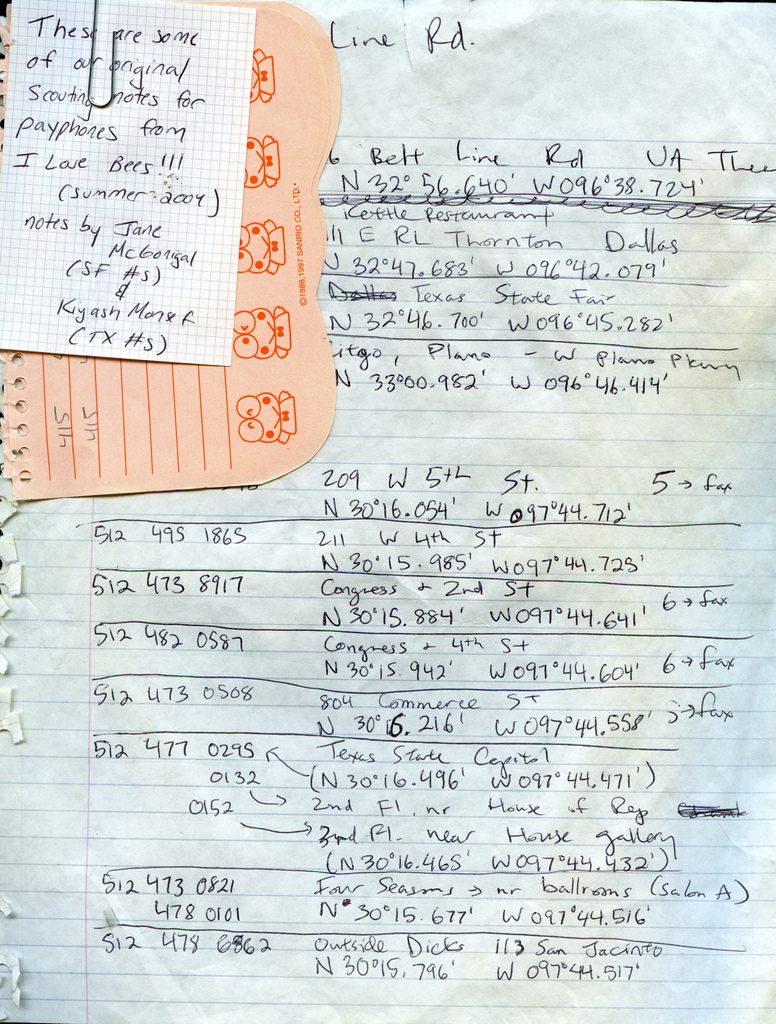 These are some
of our original
Scouting notes for
payphones from
I Love Bees!!!
(summer 2004)
notes by Jane
McGonigal
(SF #s)
&
Kiyash Monsef
(TX #s)
©1988,1997 SANRIO CO., LTD.
415
415
Line Rd.
6 Belt Line Rd UA Thea
N 32° 56.640' W 096°38.724'
Kettle Restaurant
11 E RL Thornton Dallas
N 32°47.683' W 096°42.079'
Dallas Texas State Fair
N 32°46.700' W 096°45.282'
Plano - W Plano Pkwy
N 33°00.982' W 096°46.414'
209 W 5th St. 5 → fax
N 30°16.054' W 097°44.712'
512 495 1865 211 W 4th St
N 30°15.985' W 097°44.723'
512 473 8917 Congress + 2nd St
N 30°15.884' W 097°44.641' 6 → fax
512 482 0587 Congress + 4th St
N 30°15.942' W 097°44.604' 6 → fax
512 473 0508 804 Commerce St
N 30°16.216' W 097°44.558' → fax
512 477 0295 Texas State Capitol
0132 (N 30°16.496' W 097°44.471')
0152 2nd Fl. nr House of Rep
2nd Fl. near House gallery
(N 30°16.465' W 097°44.432')
512 473 0821 Four Seasons → nr ballrooms (Salon A)
478 0101 N 30°15.677' W 097°44.516'
512 478 6862 Outside Dicks 113 San Jacinto
N 30°15.796' W 097°44.517'